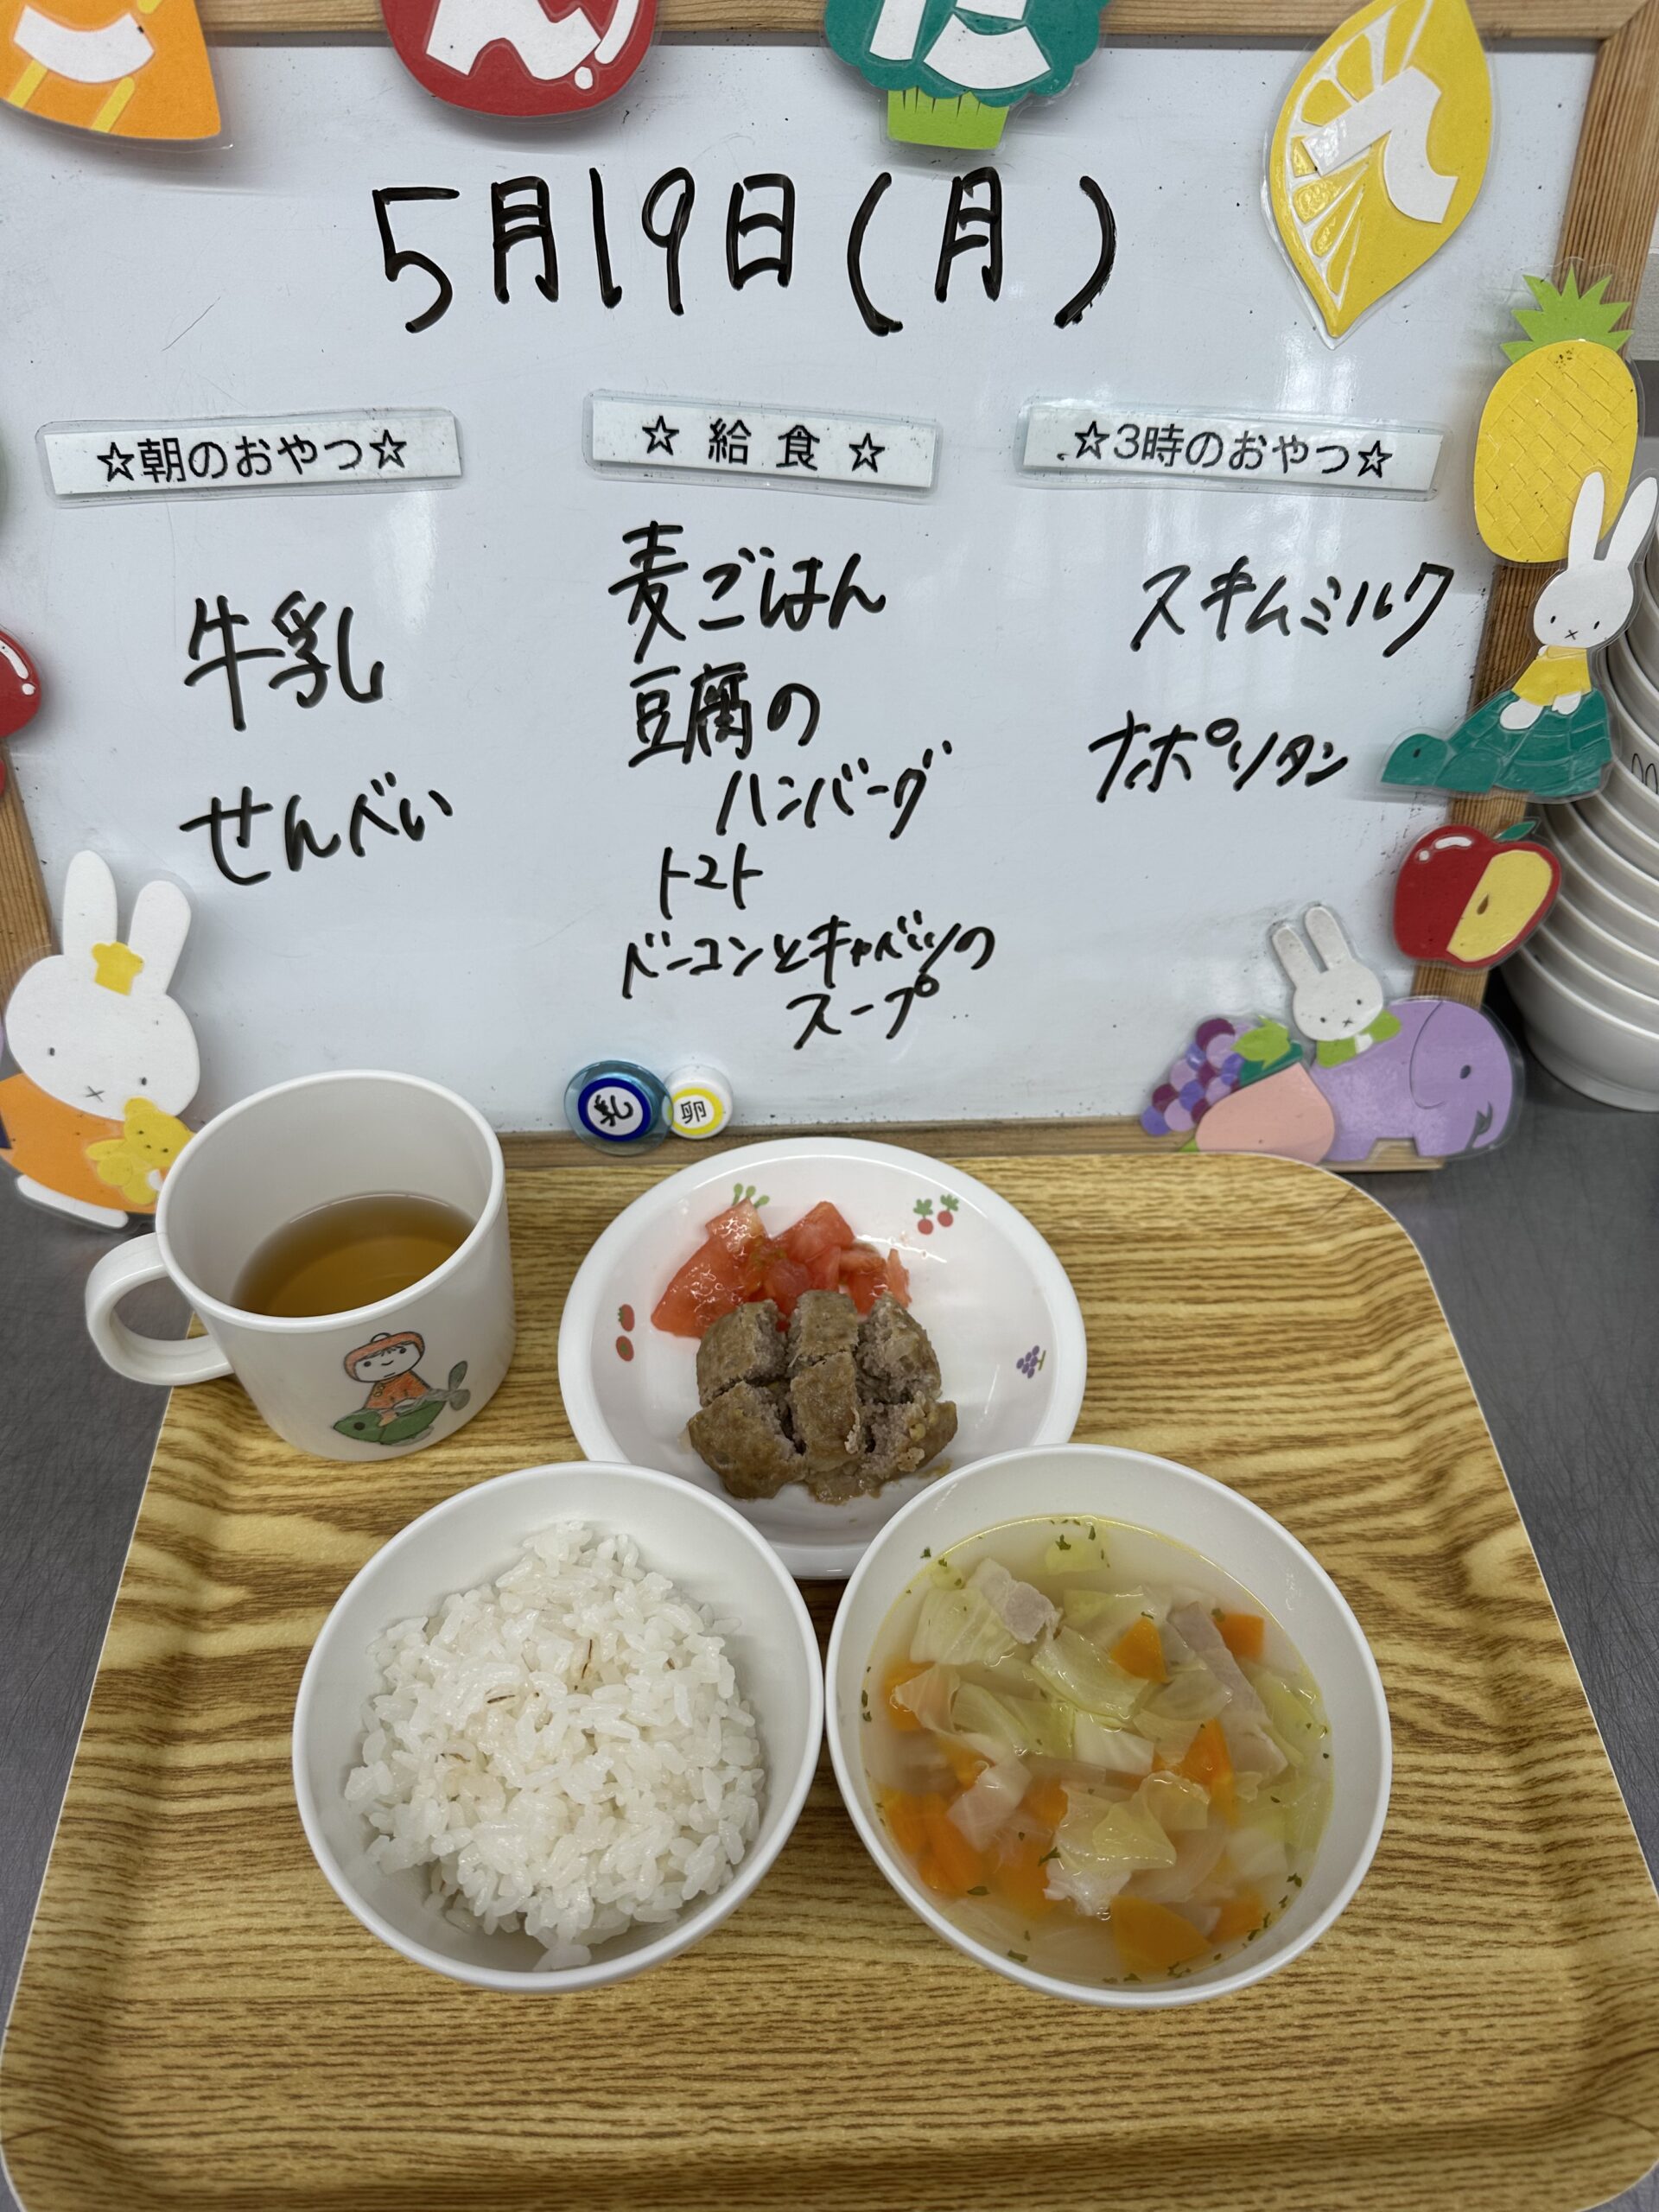 5月19日(月)
☆朝のおやつ☆
牛乳
せんべい
☆給食☆
麦ごはん
豆腐の
ハンバーグ
トマト
ベーコンとキャベツの
スープ
☆3時のおやつ☆
スキムミルク
ナポリタン
乳
卵